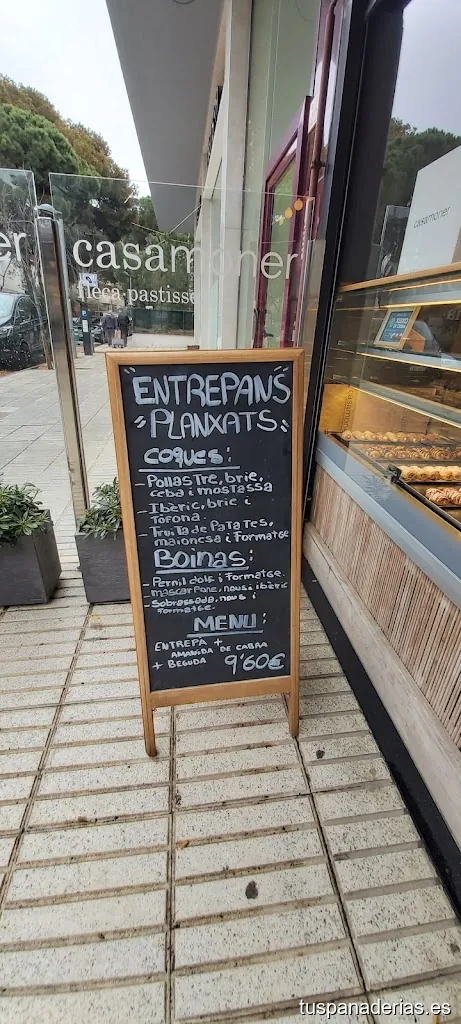 casamoner
fleca.pastisse
casamoner
"ENTREPANS
"PLANXATS"
COQUES:
- POLLASTRE, brie,
ceba i mostassa
- IBÈRIC, brie i
TÒFONA.
- TRUITA DE PATATES,
maionesa i FORMATGE
BOINAS:
- PERNIL dolç i FORMATGE.
- mascarpone, nous i ibèric
- SOBRASSADA, nous i
FORMATGE.
MENU:
ENTREPA +
AMANIDA DE CABRA
+ BEGUDA 9'60€
tuspanaderias.es